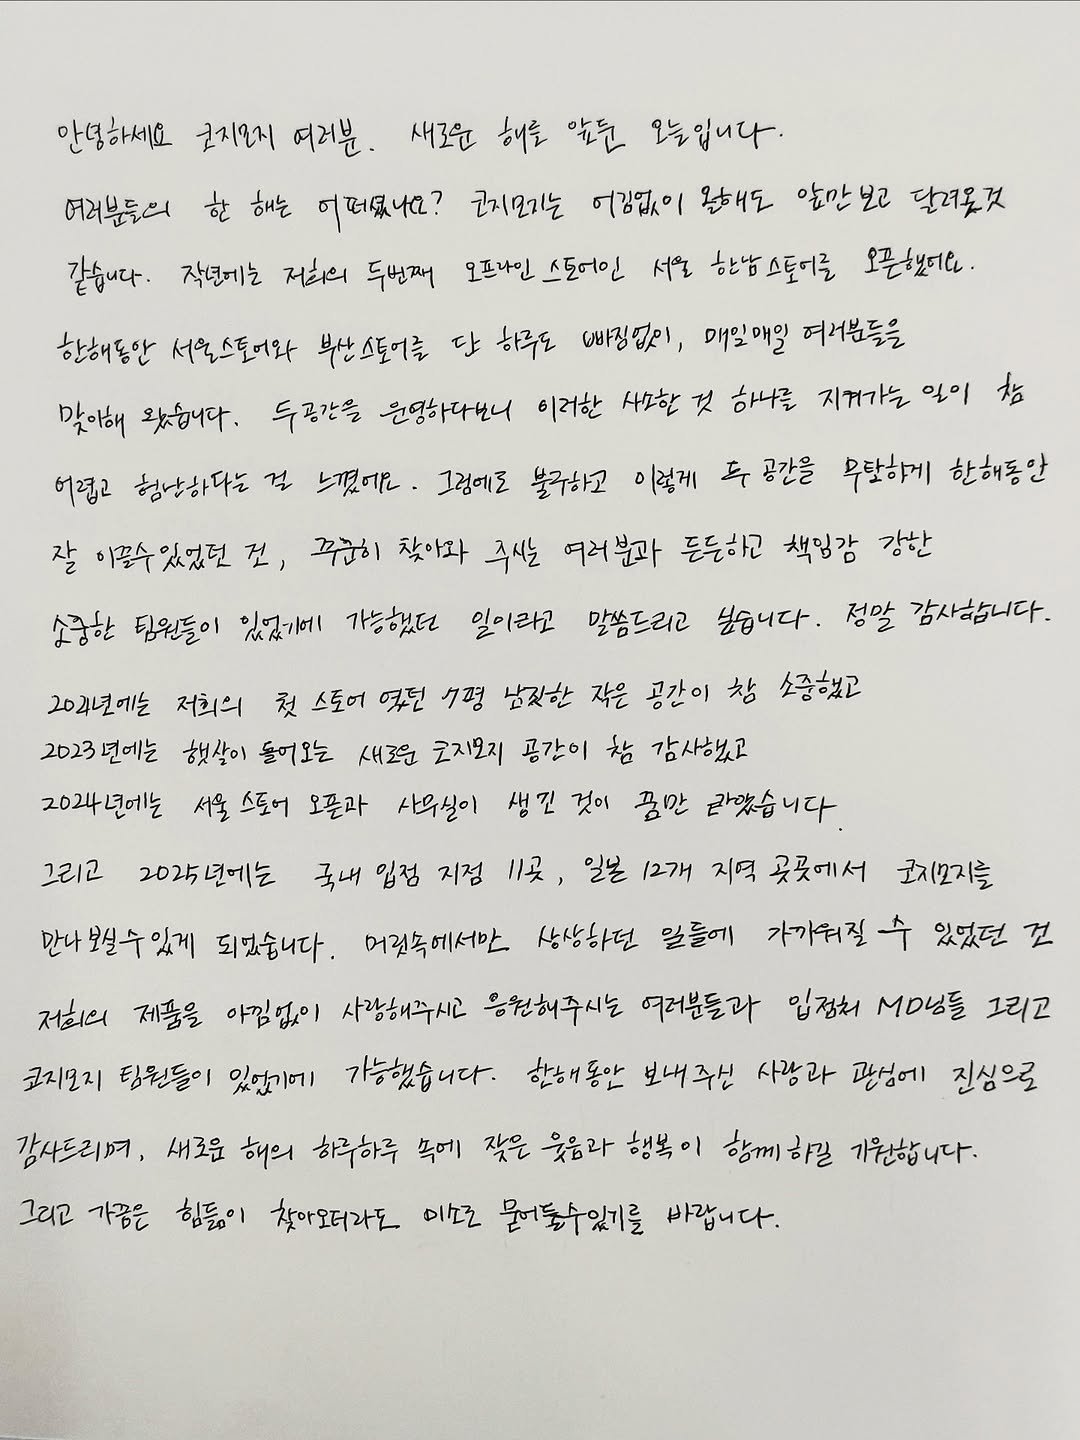 안녕하세요 코지모지 여러분. 새로운 해를 앞둔 오늘입니다.
여러분들의 한 해는 어떠셨나요? 코지모지는 어김없이 올해도 앞만보고 달려온것
같습니다. 작년에는 저희의 두번째 오프라인 스토어인 서울 한남스토어를 오픈했어요.
한해동안 서울스토어와 부산스토어를 단 하루도 빠짐없이, 매일매일 여러분들을
맞이해 왔습니다. 두공간을 운영하다보니 이러한 사소한 것 하나를 지켜가는 일이 참
어렵고 험난하다는 걸 느꼈어요. 그럼에도 불구하고 이렇게 두 공간을 무탈하게 한해동안
잘 이끌수있었던 건, 꾸준히 찾아와 주시는 여러분과 든든하고 책임감 강한
소중한 팀원들이 있었기에 가능했던 일이라고 말씀드리고 싶습니다. 정말 감사합니다.
2021년에는 저희의 첫 스토어 였던 7평 남짓한 작은 공간이 참 소중했고
2023년에는 햇살이 들어오는 새로운 코지모지 공간이 참 감사했고
2024년에는 서울 스토어 오픈과 사무실이 생긴 것이 꿈만 같았습니다.
그리고 2025년에는 국내 입점 지점 11곳, 일본 12개 지역 곳곳에서 코지모지를
만나보실수있게 되었습니다. 머릿속에서만 상상하던 일들에 가까워질 수 있었던 건
저희의 제품을 아낌없이 사랑해주시고 응원해주시는 여러분들과 입점처 MD님들 그리고
코지모지 팀원들이 있었기에 가능했습니다. 한해동안 보내주신 사랑과 관심에 진심으로
감사드리며, 새로운 해의 하루하루 속에 잦은 웃음과 행복이 함께하길 기원합니다.
그리고 가끔은 힘듦이 찾아오더라도 미소로 묻어둘수있기를 바랍니다.